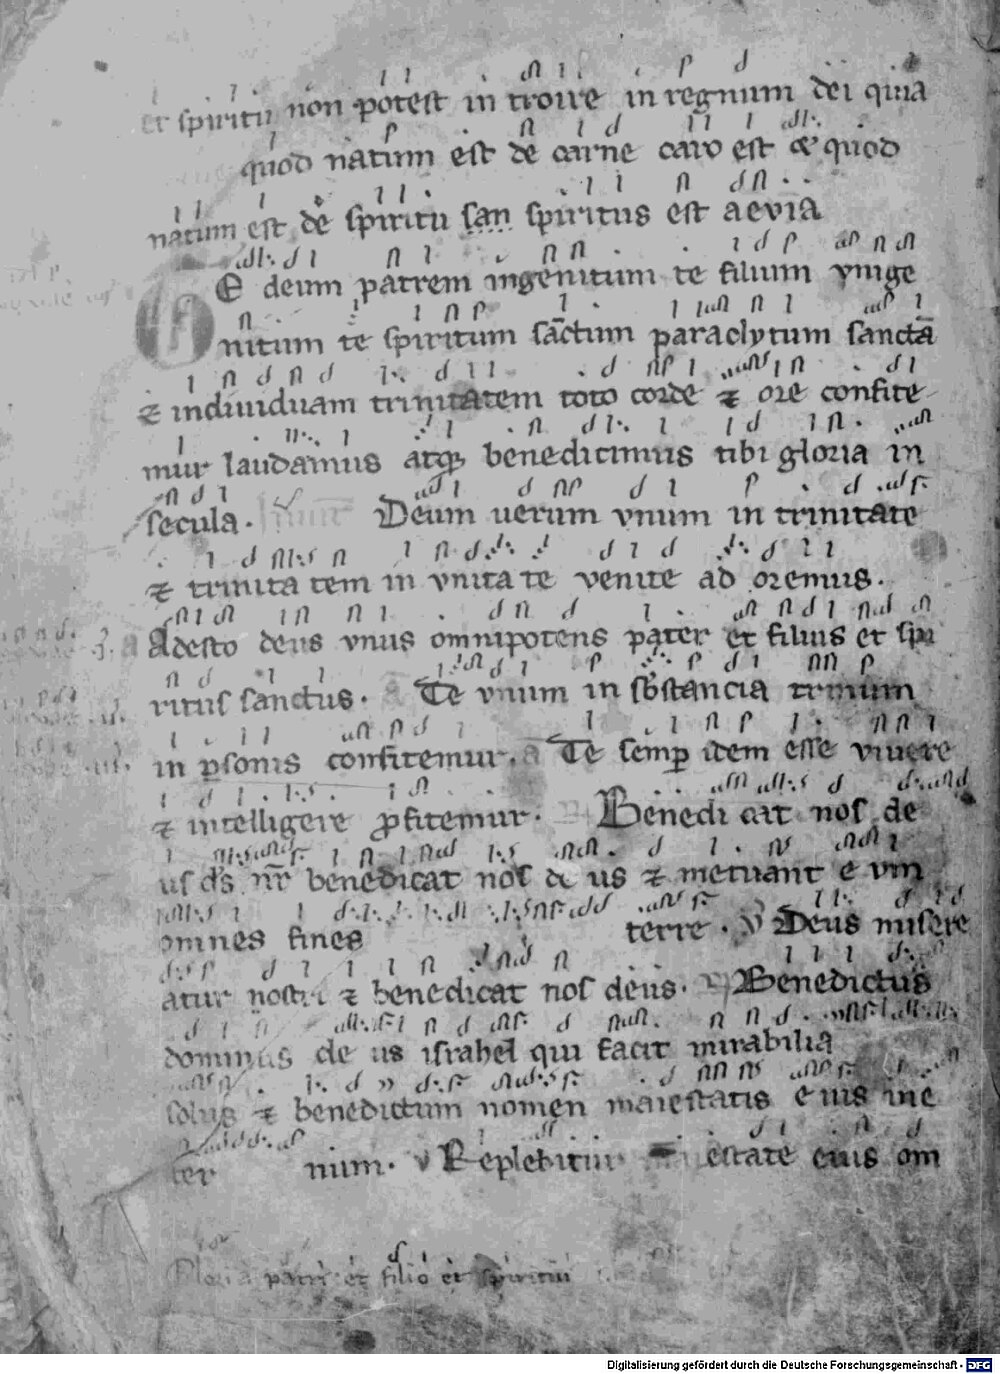 et spiritu non potest introire in regnum dei quia
quod natum est de carne caro est & quod
natum est de spiritu san spiritus est aevia
E deum patrem ingenitum te filium vnige
nitum te spiritum sāctum paraclytum sanctā
& indiuiduam trinitatem toto corde & ore confite
mur laudamus atq; benedicimus tibi gloria in
secula. Deum uerum vnum in trinitate
& trinita tem in vnita te venite ad oremus.
Adesto deus vnus omnipotens pater et filius et spi
ritus sanctus. Te vnum in sb̄stancia trinum
in ꝑsonis confitemur. a Te semꝑ idem esse viuere
& intelligere ꝓfitemur. Benedi cat nos de
us d̄s nr̄ benedicat nos de us & metuant e vm
omnes fines terre. v Deus misere
atur nostri & benedicat nos deus. Benedictus
dominus de us israhel qui facit mirabilia
solus & benedictum nomen maiestatis e ius ine
ter num. v Replebitur estate eius om
Gloria patri et filio et spiritui
Digitalisierung gefördert durch die Deutsche Forschungsgemeinschaft - DFG